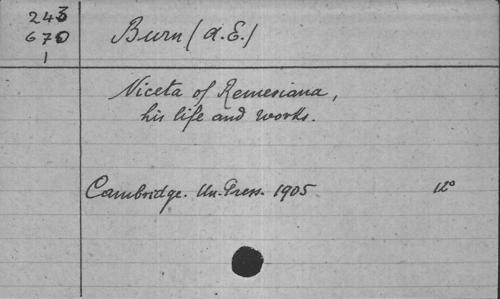 243
670
1
Burn (A.E.)
Niceta of Remesiana,
his life and works.
Cambridge. Un. Press. 1905. 12°